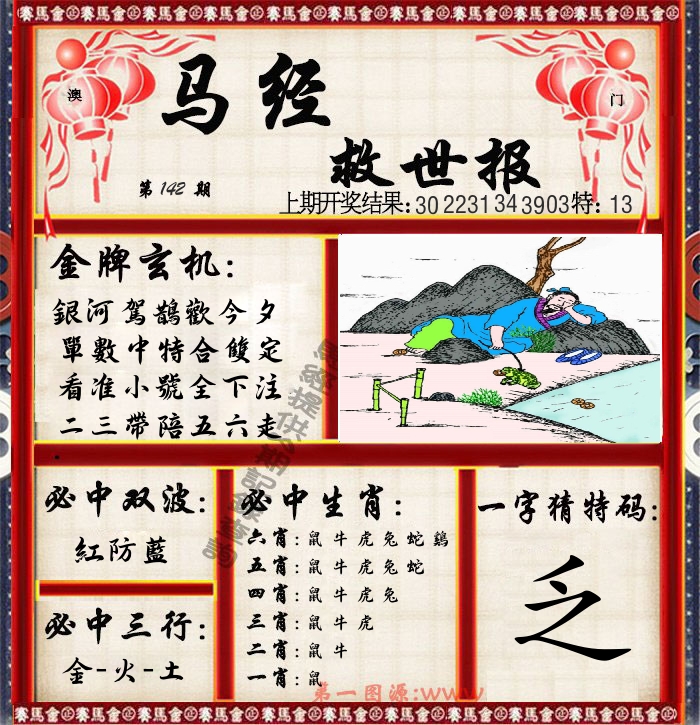 賽馬會㊣賽馬會㊣賽馬會㊣賽馬會㊣賽馬會㊣賽馬會㊣賽馬會㊣賽馬會
澳
门
马经
救世报
第142期
上期开奖结果:30 2231 34 3903 特:13
金牌玄机:
銀河駕鵲歡今夕
單數中特合雙定
看准小號全下注
二三帶陪五六走
必中双波:
紅防藍
必中三行:
金-火-土
必中生肖:
六肖:鼠牛虎兔蛇鷄
五肖:鼠牛虎兔蛇
四肖:鼠牛虎兔
三肖:鼠牛虎
二肖:鼠牛
一肖:鼠
一字猜特码:
乏
第一图源:www